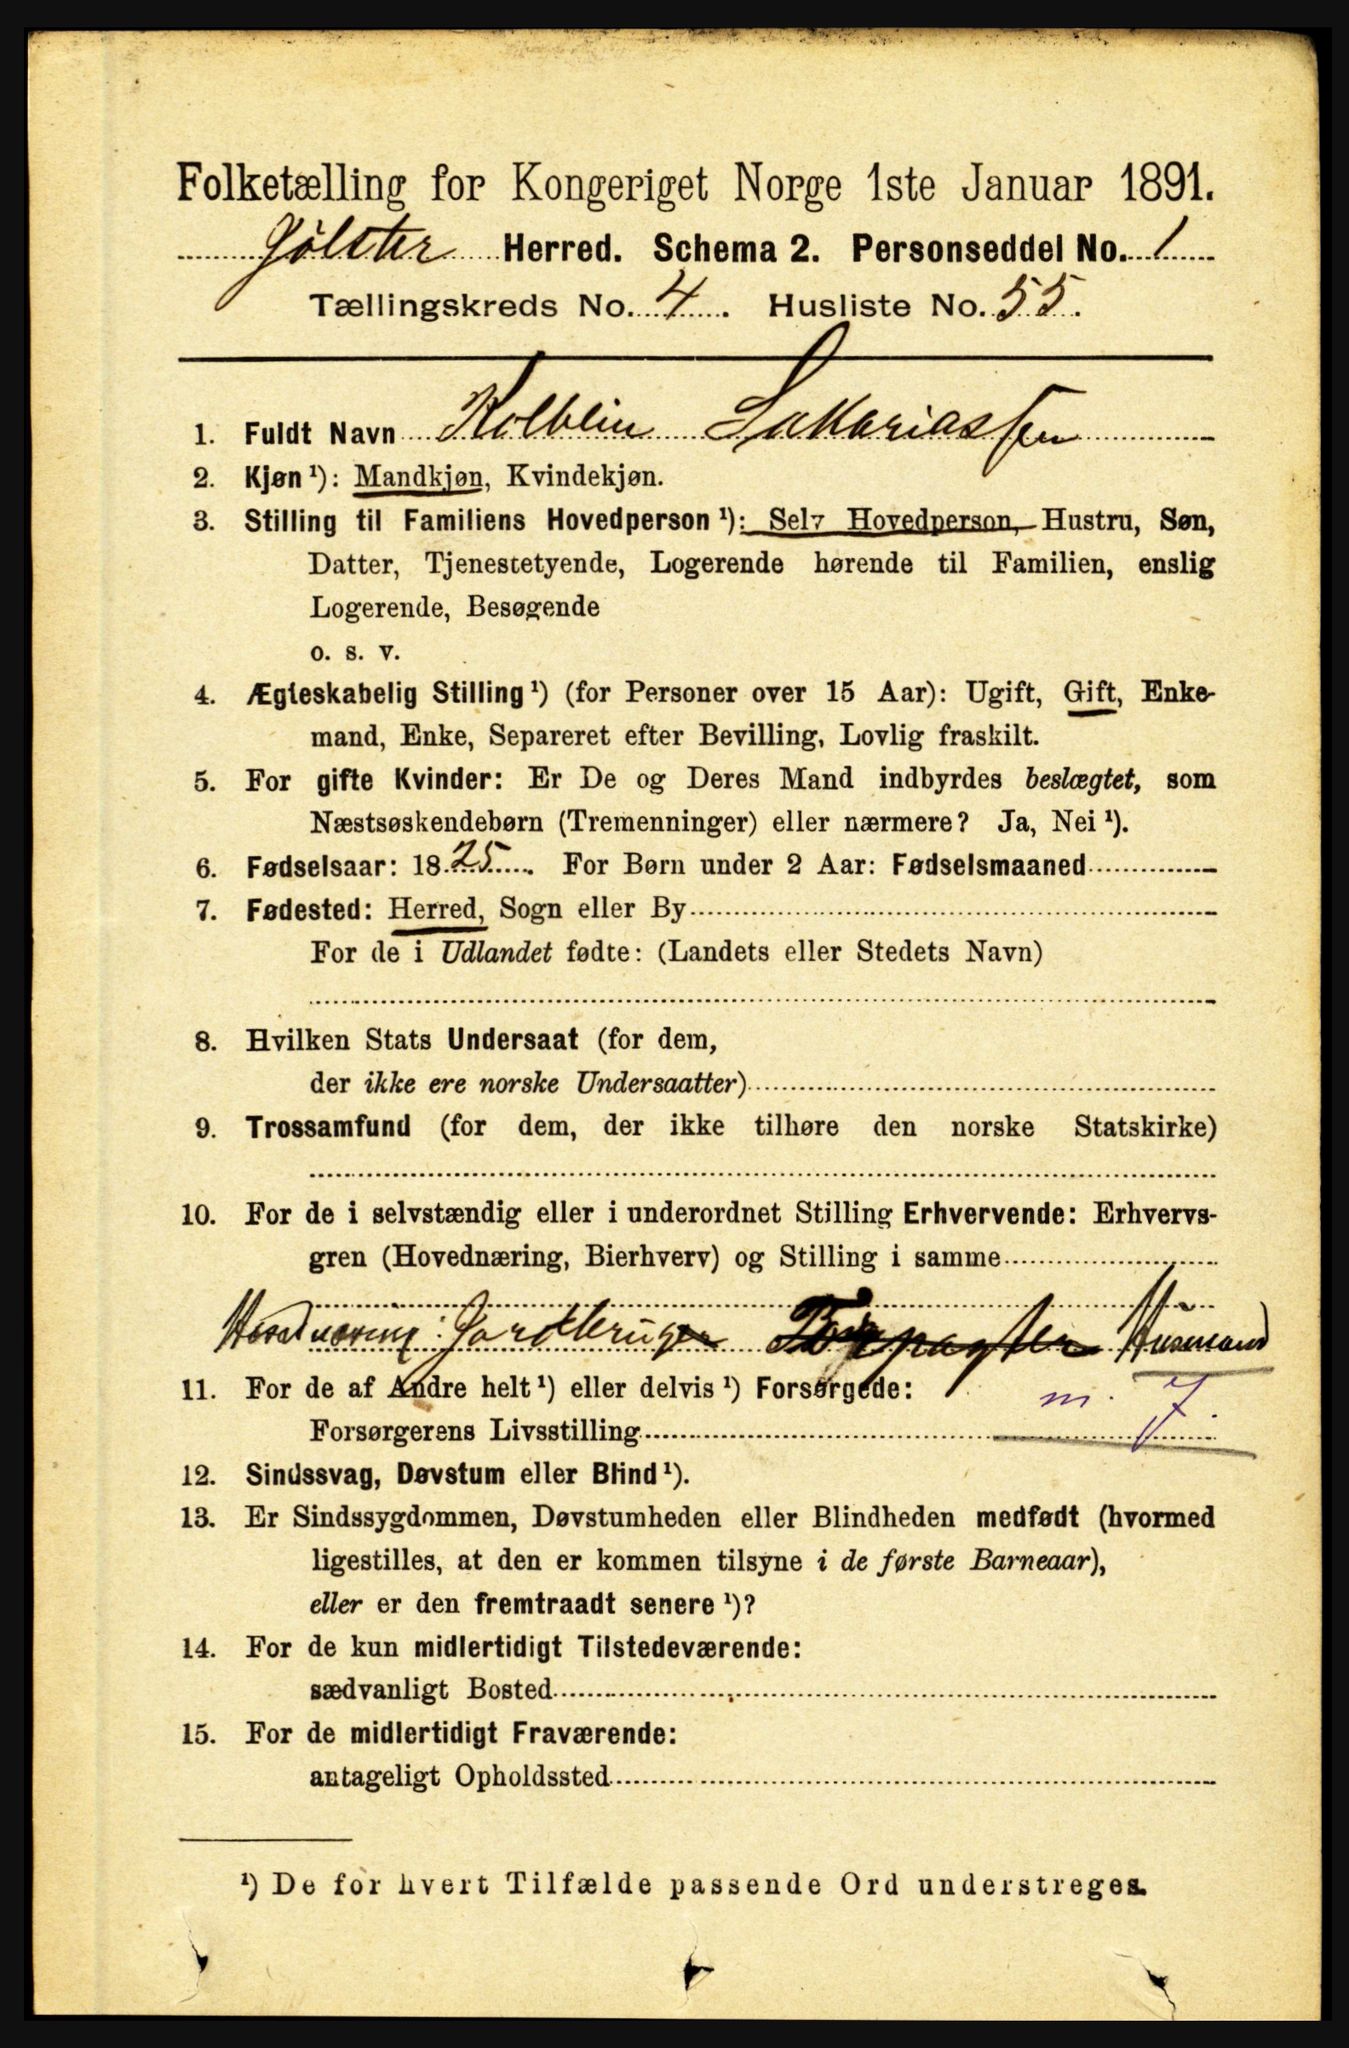 Folketælling for Kongeriget Norge 1ste Januar 1891.
Jölster Herred. Schema 2. Personseddel No. 1
Tællingskreds No. 4. Husliste No. 55.
1. Fuldt Navn Kolblin Sakariassen
2. Kjøn¹): Mandkjøn, Kvindekjøn.
3. Stilling til Familiens Hovedperson¹): Selv Hovedperson, Hustru, Søn,
Datter, Tjenestetyende, Logerende hørende til Familien, enslig
Logerende, Besøgende
o. s. v.
4. Ægteskabelig Stilling¹) (for Personer over 15 Aar): Ugift, Gift, Enke-
mand, Enke, Separeret efter Bevilling, Lovlig fraskilt.
5. For gifte Kvinder: Er De og Deres Mand indbyrdes beslægtet, som
Næstsøskendebørn (Tremenninger) eller nærmere? Ja, Nei¹).
6. Fødselsaar: 1825. For Børn under 2 Aar: Fødselsmaaned
7. Fødested: Herred, Sogn eller By
For de i Udlandet fødte: (Landets eller Stedets Navn)
8. Hvilken Stats Undersaat (for dem,
der ikke ere norske Undersaatter)
9. Trossamfund (for dem, der ikke tilhøre den norske Statskirke)
10. For de i selvstændig eller i underordnet Stilling Erhvervende: Erhvervs-
gren (Hovednæring, Bierhverv) og Stilling i samme
Hovednæring: Jordbruger Husmand
11. For de af Andre helt¹) eller delvis¹) Forsørgede:
m. J.
Forsørgerens Livsstilling
12. Sindssvag, Døvstum eller Blind¹).
13. Er Sindssygdommen, Døvstumheden eller Blindheden medfødt (hvormed
ligestilles, at den er kommen tilsyne i de første Barneaar),
eller er den fremtraadt senere¹)?
14. For de kun midlertidigt Tilstedeværende:
sædvanligt Bosted
15. For de midlertidigt Fraværende:
antageligt Opholdssted
¹) De for hvert Tilfælde passende Ord understreges.